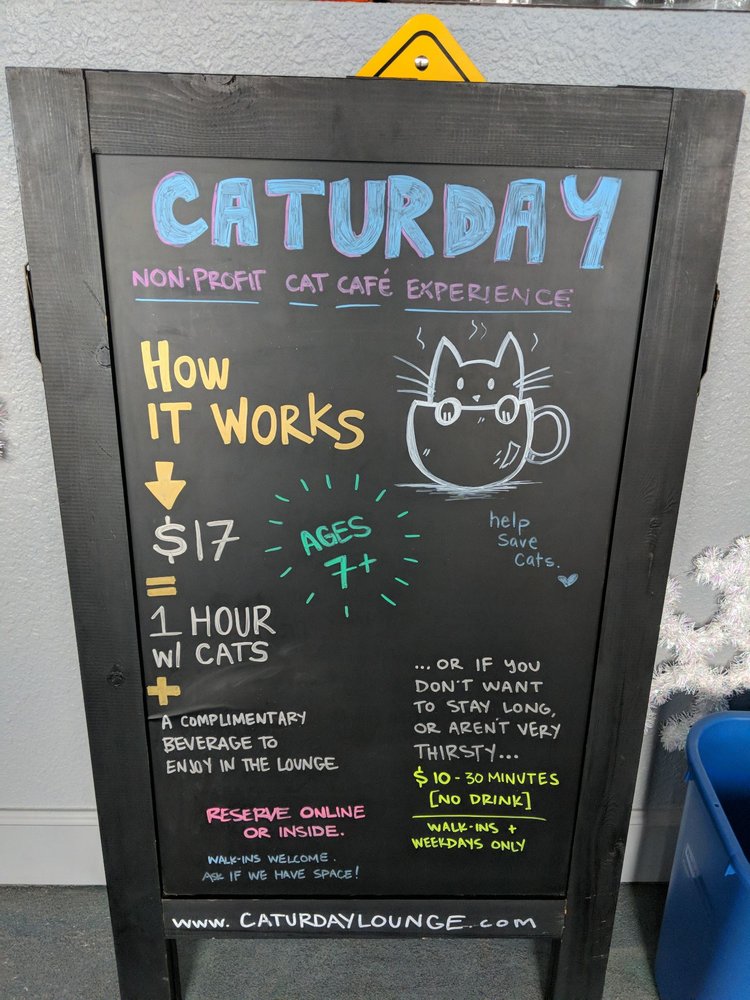 CATURDAY
NON-PROFIT CAT CAFÉ EXPERIENCE
HOW
IT WORKS
$17
=
1 HOUR
W/ CATS
+
A COMPLIMENTARY
BEVERAGE TO
ENJOY IN THE LOUNGE
AGES
7+
help
save
cats.
...OR IF YOU
DON'T WANT
TO STAY LONG,
OR AREN'T VERY
THIRSTY...
$10 - 30 MINUTES
[NO DRINK]
WALK-INS +
WEEKDAYS ONLY
RESERVE ONLINE
OR INSIDE.
WALK-INS WELCOME.
ASK IF WE HAVE SPACE!
www.CATURDAYLOUNGE.com